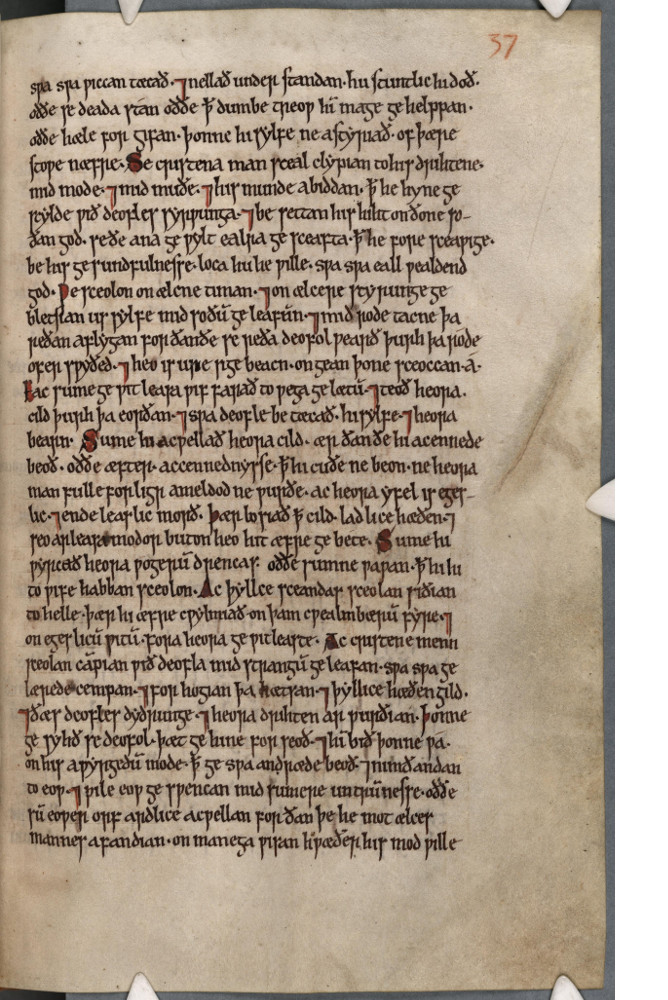 37
spa spa piccan tæcað· ⁊ nellað under standan· hu stuntlice hi doð·
oððe se deada stan oððe þ̄ dumbe treop hī mage ge helppan·
oððe hæle for gifan· þonne hi sylfe ne astyriað· of þære
stope næfre· Se cristena man sceal clypian to his drihtene·
mid mode· ⁊ mid muðe· ⁊ his munde abiddan· þ̄ he hyne ge
scylde pið deofles syrpunga· ⁊ be settan his hiht on ðone so-
ðan god· se ðe ana ge pylt ealra ge sceafta· þ̄ he fore sceapige·
be his ge sundfulnesse· loca hu he pille· spa spa eall pealdend
god· Ƿe sceolon on ælcne timan· ⁊ on ælcere styrunge ge
bletsian us sylfe mid soðū ge leafun· ⁊ mid rode tacne þa
reðan aflygan for ðan ðe se reða deofol pearð þurh þa rode
ofer spyðed· ⁊ heo is ure sige beacn· on gean þone sceoccan· á·
Eac sume ge pit leasa pif farað to pega ge lætū· ⁊ teoð heora·
cild þurh þa eorðan· ⁊ spa deofle be tæcað· hi sylfe· ⁊ heora
bearn· Sume hi acpellað heora cild· ær ðan ðe hi acennede
beoð· oððe æfter accennednysse· þ̄ hi cuðe ne beon· ne heora
man fulle forligr ameldod ne purðe· ac heora yfel is eges-
lic· ⁊ ende leaslic morð· Þær losað þ̄ cild· laðlice hæðen· ⁊
seo arleasa modor buton heo hit æfre ge bete· Sume hi
pyrceað heora pogerū drencas· oððe sumne papan· þ̄ hi hi
to pife habban sceolon· Ac þyllce sceandas sceolan siðian
to helle· þær hi æfre cpylmiað· on þam cpealmbærū fyre· ⁊
on egeslicū pitū· fora heora ge pitleaste· Ac cristene menn
sceolan cāpian pið deofla mid strangū ge leafan· spa spa ge
lærede cempan· ⁊ for hogian þa hætsan· ⁊ þyllice hæðen gild·
⁊ ðæs deofles dydrunge· ⁊ heora drihten ar purðian· þonne
ge syhð se deofol· þæt ge hine for seoð· ⁊ hī bið þonne pa·
on his apyrgedū mode· þ̄ ge spa andræde beoð· ⁊ nimð andan
to eop· ⁊ pile eop ge spencan mid sumere untrūnesse· oððe
sū eoper orf ardlice acpellan for ðan þe he mot ælces
mannes afandian· on manega pisan hpæðer his mod pille